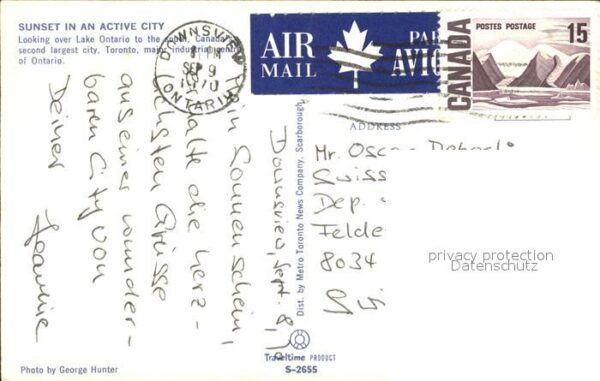 SUNSET IN AN ACTIVE CITY
Looking over Lake Ontario to the Canada's
second largest city, Toronto, major industrial centre
of Ontario.
DOWNSVIEW
PM
SEP 9
1970
ONTARIO
AIR
MAIL
PAR
AVION
CANADA
POSTES POSTAGE
15
ADDRESS
Downsview, Sept. 8, 70
Sonnenschein,
die herz-
lichsten Grüsse
aus einer wunder-
baren City von
Deiner Jeannine
Dist. by Metro Toronto News Company, Scarborough,
Mr. Oscar
Swiss
Dep.
Felde
8034
Swi
privacy protection
Datenschutz
Traveltime PRODUCT
S-2655
Photo by George Hunter